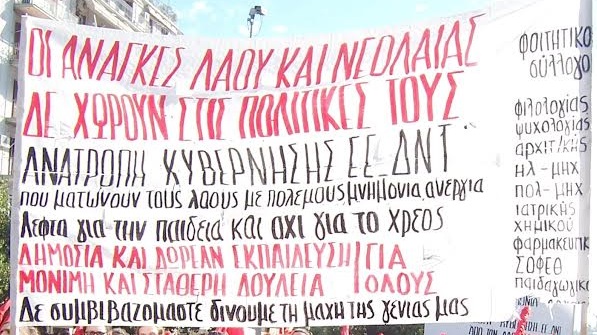 ΟΙ ΑΝΑΓΚΕΣ ΛΑΟΥ ΚΑΙ ΝΕΟΛΑΙΑΣ
ΔΕ ΧΩΡΟΥΝ ΣΤΙΣ ΠΟΛΙΤΙΚΕΣ ΤΟΥΣ
ΑΝΑΤΡΟΠΗ ΚΥΒΕΡΝΗΣΗΣ ΕΕ ΔΝΤ
που ματώνουν τους λαους με πολεμους, μνημόνια, ανεργια
Λεφτα για την παιδεια και οχι για το χρεος
ΔΗΜΟΣΙΑ ΚΑΙ ΔΩΡΕΑΝ ΕΚΠΑΙΔΕΥΣΗ ΓΙΑ
ΜΟΝΙΜΗ ΚΑΙ ΣΤΑΘΕΡΗ ΔΟΥΛΕΙΑ ΟΛΟΥΣ
Δε συμβιβαζομαστε δινουμε τη μαχη της γενιας μας
φοιτητικο
σύλλογο
φιλολογίας
ψυχολογίας
αρχιτ/κής
ηλ-μηχ
πολ-μηχ
ιατρικής
χημικού
φαρμακευτικ
ΣΟΦΕΘ
παιδαγωγικο